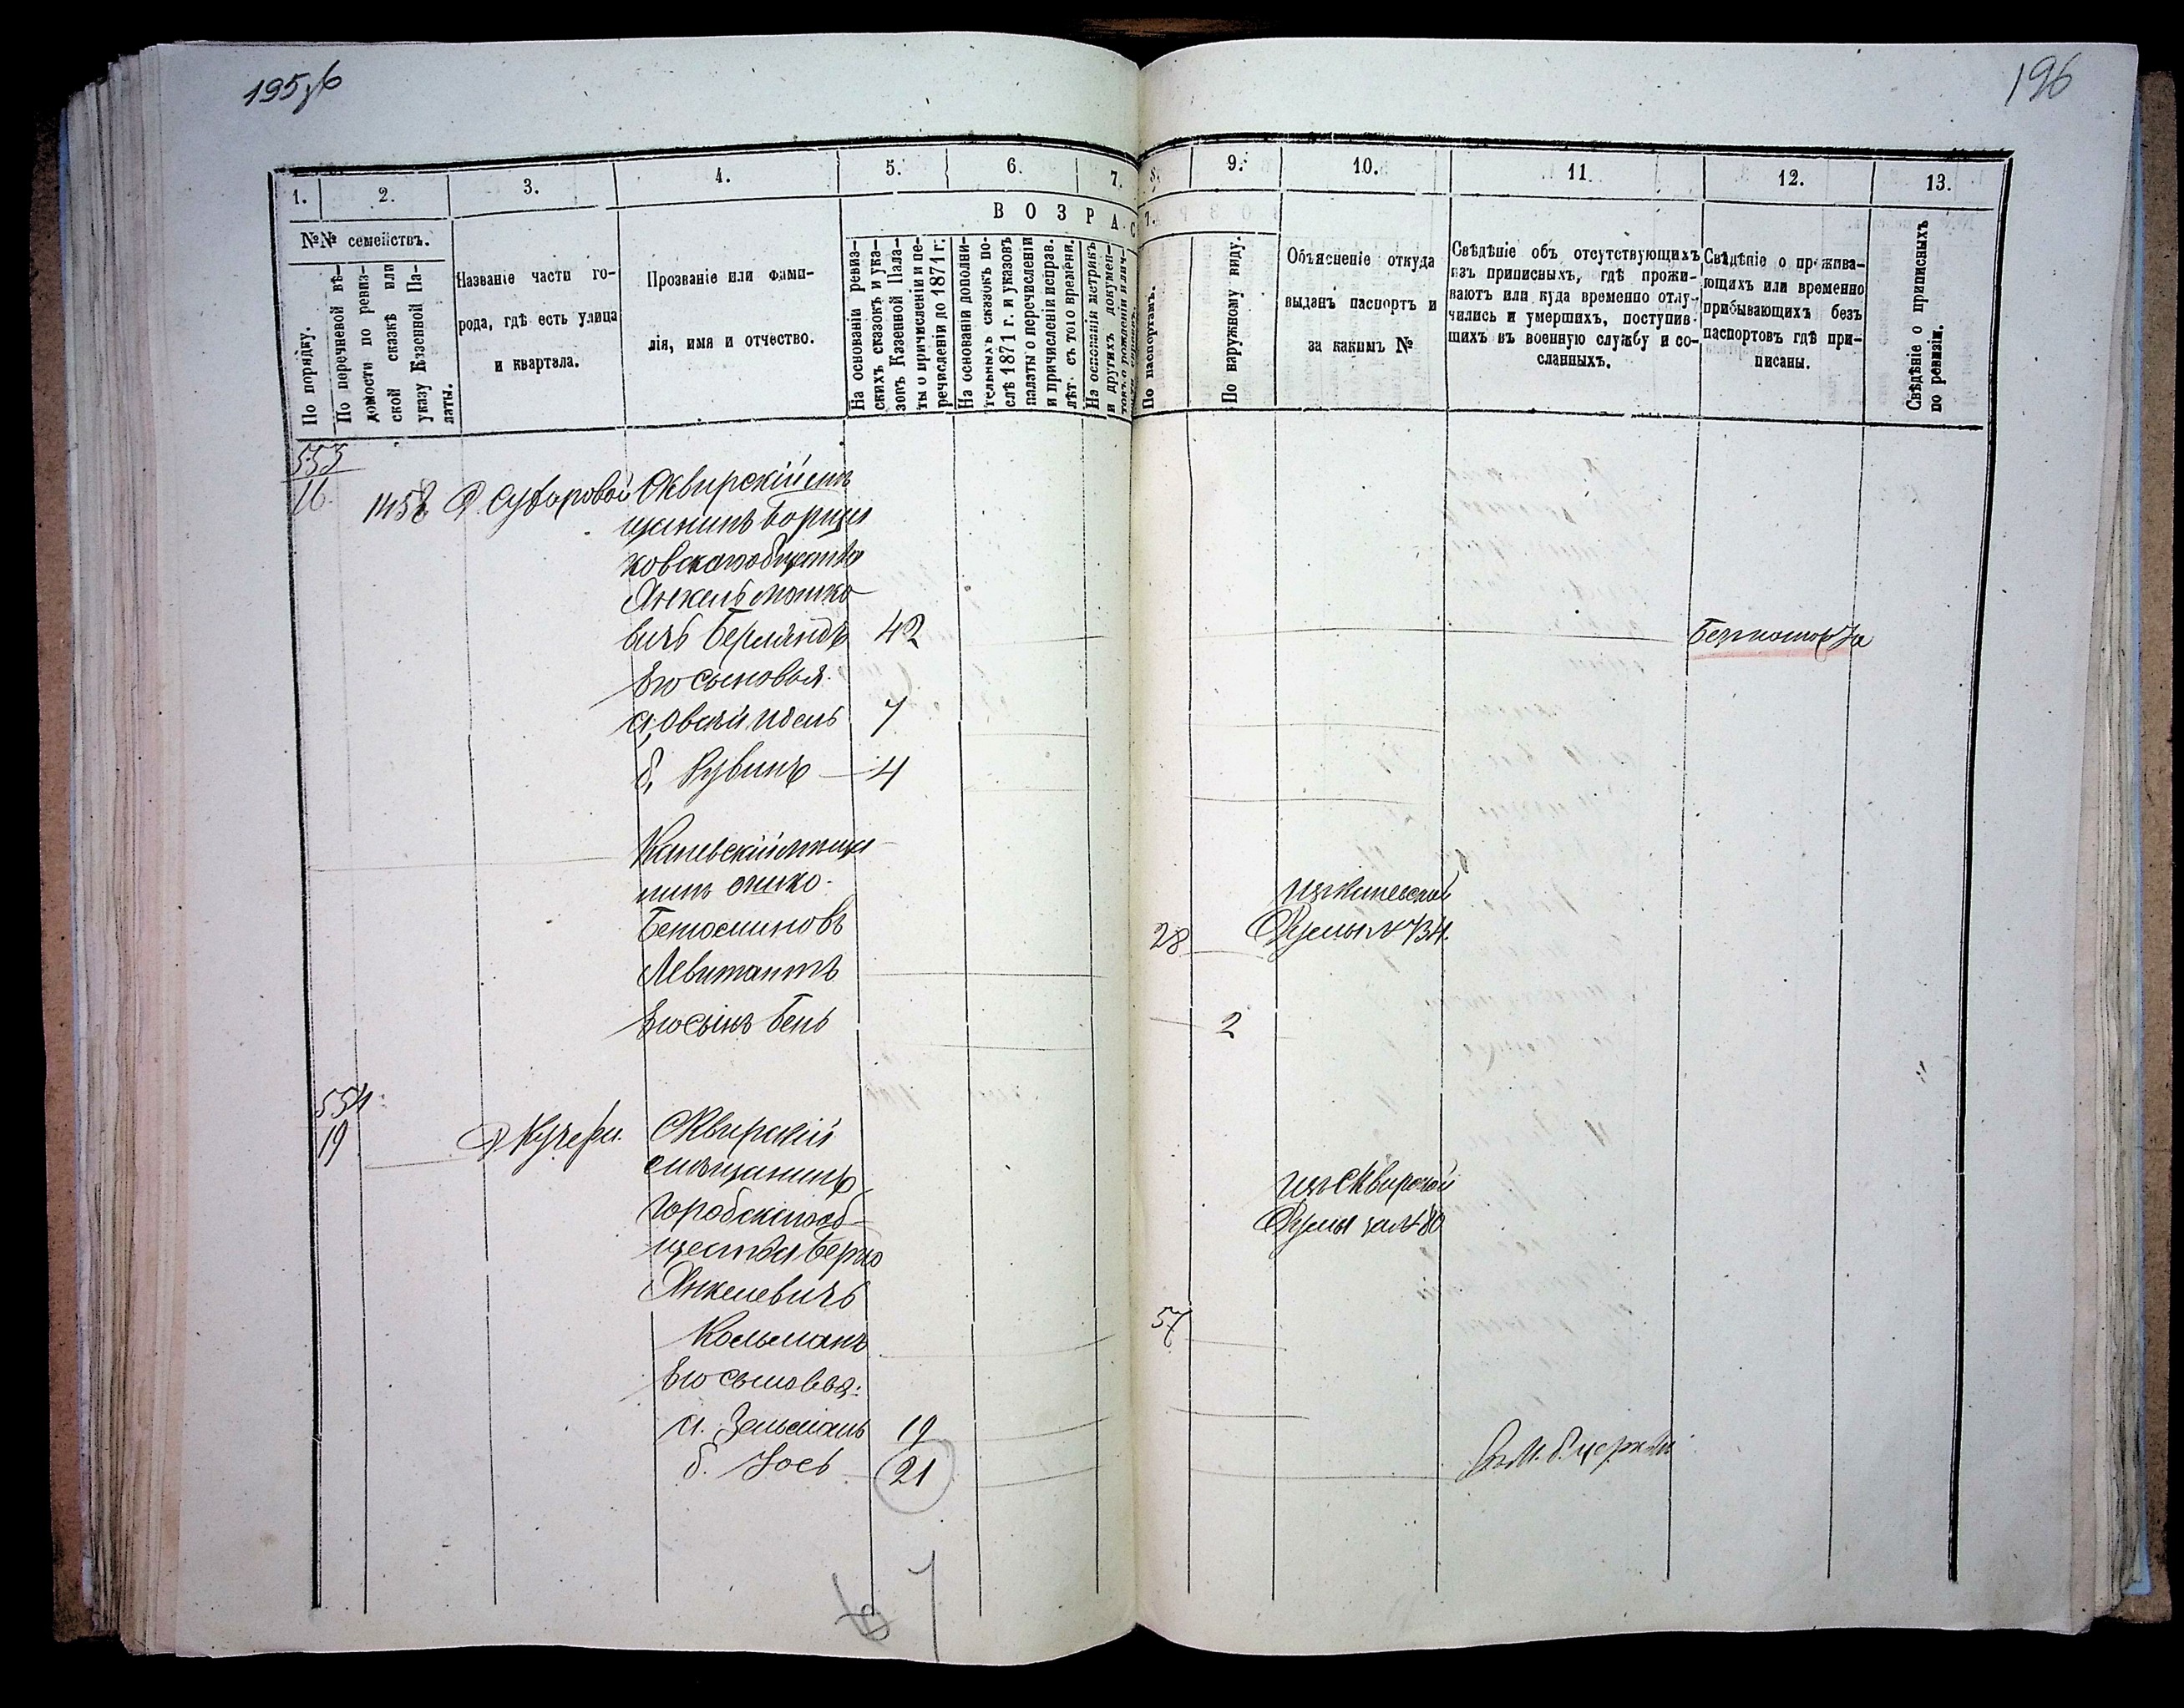 195 об
196
1.
2.
3.
4.
5.
6.
7.
8.
9.
10.
11.
12.
13.
№№ семействъ.
ВОЗРАСТ.
По порядку.
По перечневой вѣ-
домости по ревиз-
ской сказкѣ или
указу Казенной Па-
латы.
Названіе части го-
рода, гдѣ есть улица
и квартала.
Прозваніе или фами-
лія, имя и отчество.
На основаніи ревиз-
скихъ сказокъ и ука-
зовъ Казенной Пала-
ты о причисленіи и пе-
речисленіи до 1871 г.
На основаніи дополни-
тельныхъ сказокъ по-
слѣ 1871 г. и указовъ
палаты о перечисленіи
и причисленіи исправ.
лѣт. съ того времени.
На основаніи метрикъ
и другихъ докумен-
По паспортамъ.
По наружному виду.
Объясненіе откуда
выданъ паспортъ и
за какимъ №
Свѣдѣніе объ отсутствующихъ
изъ приписныхъ, гдѣ прожи-
ваютъ или куда временно отлу-
чились и умершихъ, поступив-
шихъ въ военную службу и со-
сланныхъ.
Свѣдѣніе о прожива-
ющихъ или временно
прибывающихъ безъ
паспортовъ гдѣ при-
писаны.
Свѣдѣніе о приписныхъ
по ревизіи.
553
16
1458
Сквирскій мѣ
щанинъ Борща
ковскаго общества
Янкель Мошко
вичъ Берляндъ 42
Его сыновья:
а, Овсѣй Идель 7
б, Рувинъ 4
Каневскій мѣща
нинъ
Левитантъ
28
Изъ Каневской
Думы № 734.
Его сынъ Бень 2
554
19
Д Кучера.
Сквирскій
мѣщанинъ
городскаго об-
щества Берко
Янкелевичъ
Кольманъ 57
Изъ Сквирской
Думы за № 80
Его сыновья:
а. Зельманъ 19
б. Іось 21
Въ М. Б. Церкви
7